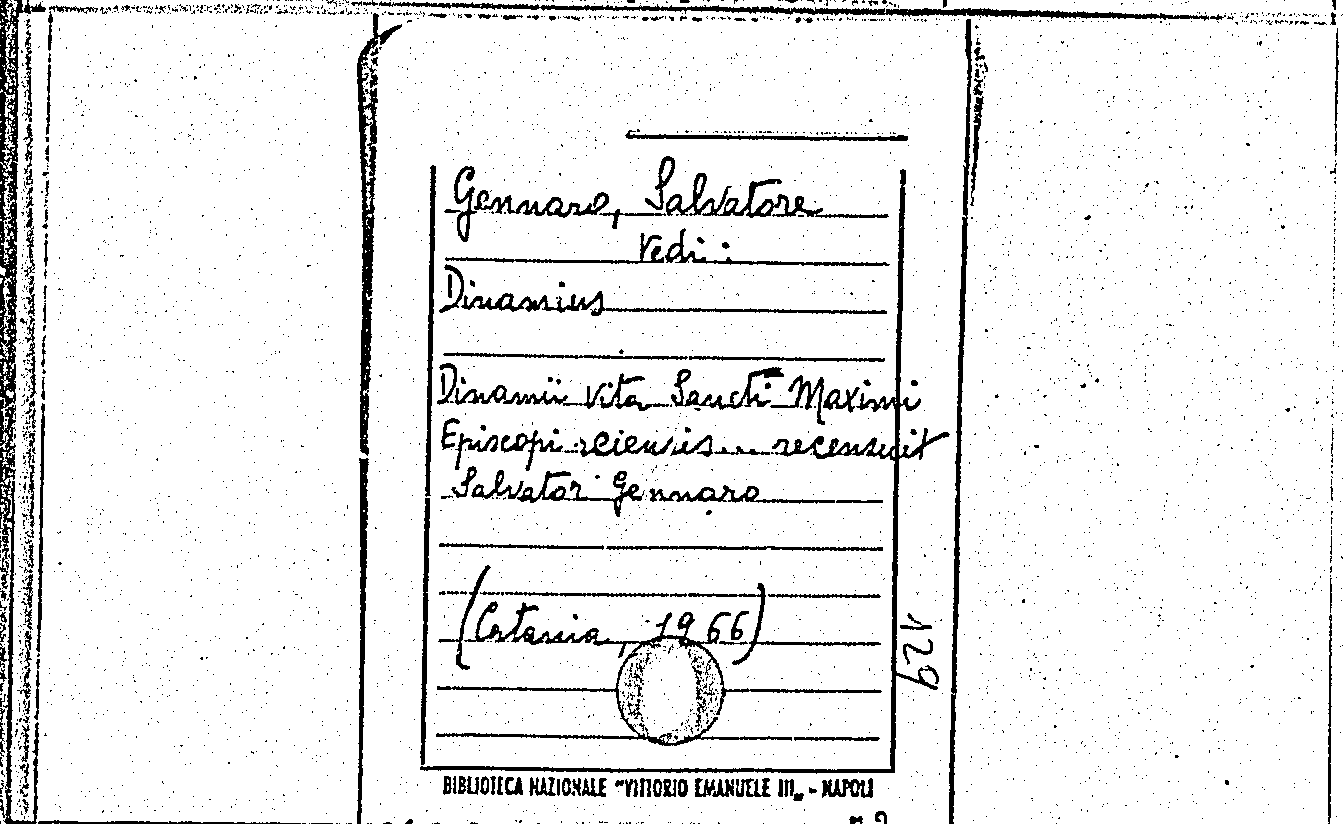 Gennaro, Salvatore
Vedi:
Dinamius
Dinamii vita Sancti Maximi
Episcopi reiensis... recensuit
Salvator Gennaro
(Catania, 1966)
129
BIBLIOTECA NAZIONALE "VITTORIO EMANUELE III„ - NAPOLI